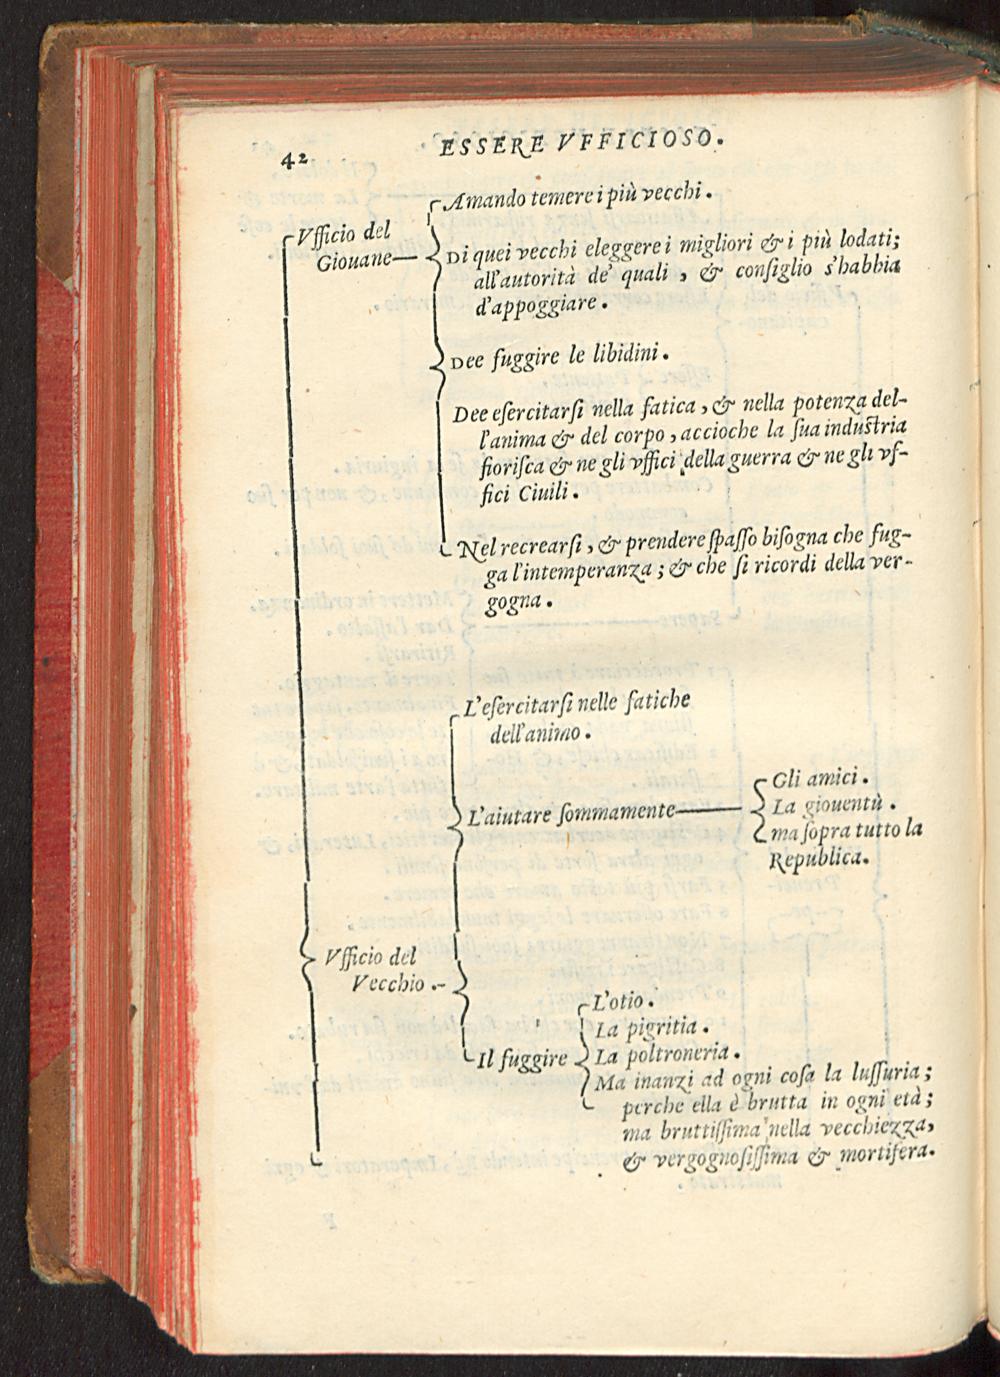 42
ESSERE VFFICIOSO.
Amando temere i più vecchi.
Vfficio del
Giouane—
Di quei vecchi eleggere i migliori & i più lodati;
all'autorità de' quali, & conſiglio s'habbia
d'appoggiare.
Dee fuggire le libidini.
Dee eſercitarſi nella fatica, & nella potenza del-
l'anima & del corpo, accioche la ſua induſtria
fioriſca & ne gli vffici della guerra & ne gli vf-
fici Ciuili.
Nel recrearſi, & prendere ſpaſſo biſogna che fug-
ga l'intemperanza; & che ſi ricordi della ver-
gogna.
L'eſercitarſi nelle fatiche
dell'animo.
L'aiutare ſommamente—
Gli amici.
La giouentù.
ma ſopra tutto la
Republica.
Vfficio del
Vecchio.-
Il fuggire
L'otio.
La pigritia.
La poltroneria.
Ma inanzi ad ogni coſa la luſſuria;
perche ella è brutta in ogni età;
ma bruttiſſima nella vecchiezza,
& vergognoſiſſima & mortifera.